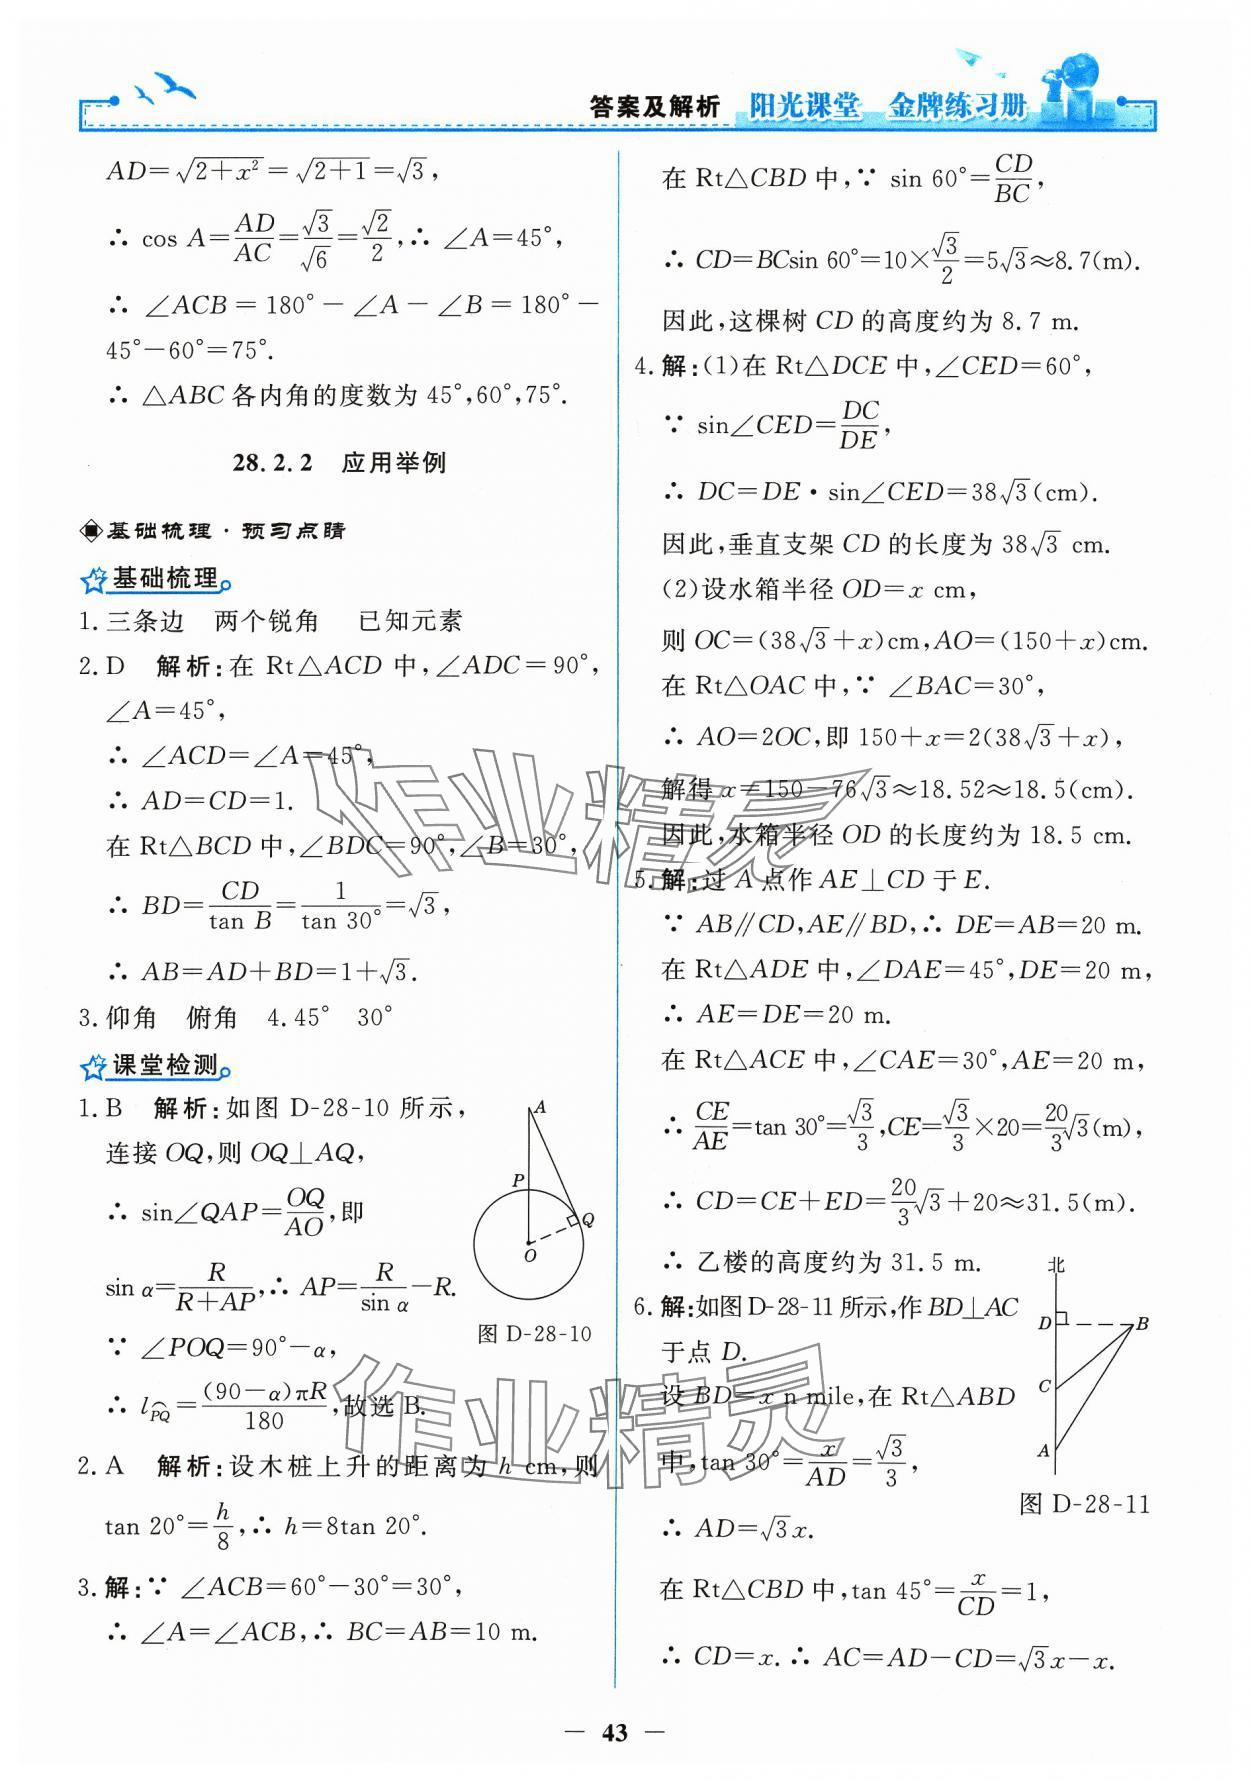 答案及解析 阳光课堂 金牌练习册
AD=√(2+x²)=√(2+1)=√3,
∴ cos A=AD/AC=√3/√6=√2/2,∴ ∠A=45°,
∴ ∠ACB=180°-∠A-∠B=180°-
45°-60°=75°.
∴ △ABC 各内角的度数为 45°,60°,75°.
28.2.2 应用举例
基础梳理·预习点睛
基础梳理
1. 三条边 两个锐角 已知元素
2. D 解析:在 Rt△ACD 中,∠ADC=90°,
∠A=45°,
∴ ∠ACD=∠A=45°,
∴ AD=CD=1.
在 Rt△BCD 中,∠BDC=90°,∠B=30°,
∴ BD=CD/tan B=1/tan 30°=√3,
∴ AB=AD+BD=1+√3.
3. 仰角 俯角 4. 45° 30°
课堂检测
1. B 解析:如图 D-28-10 所示,
连接 OQ,则 OQ⊥AQ,
∴ sin∠QAP=OQ/AO,即
sin α=R/(R+AP),∴ AP=R/sin α-R.
∵ ∠POQ=90°-α,
∴ l⌒PQ=(90-α)πR/180,故选 B.
A
P
Q
O
图 D-28-10
2. A 解析:设木桩上升的距离为 h cm,则
tan 20°=h/8,∴ h=8tan 20°.
3. 解:∵ ∠ACB=60°-30°=30°,
∴ ∠A=∠ACB,∴ BC=AB=10 m.
在 Rt△CBD 中,∵ sin 60°=CD/BC,
∴ CD=BCsin 60°=10×√3/2=5√3≈8.7(m).
因此,这棵树 CD 的高度约为 8.7 m.
4. 解:(1)在 Rt△DCE 中,∠CED=60°,
∵ sin∠CED=DC/DE,
∴ DC=DE·sin∠CED=38√3(cm).
因此,垂直支架 CD 的长度为 38√3 cm.
(2)设水箱半径 OD=x cm,
则 OC=(38√3+x)cm,AO=(150+x)cm.
在 Rt△OAC 中,∵ ∠BAC=30°,
∴ AO=2OC,即 150+x=2(38√3+x),
解得 x=150-76√3≈18.52≈18.5(cm).
因此,水箱半径 OD 的长度约为 18.5 cm.
5. 解:过 A 点作 AE⊥CD 于 E.
∵ AB∥CD,AE∥BD,∴ DE=AB=20 m.
在 Rt△ADE 中,∠DAE=45°,DE=20 m,
∴ AE=DE=20 m.
在 Rt△ACE 中,∠CAE=30°,AE=20 m,
∴ CE/AE=tan 30°=√3/3,CE=√3/3×20=20/3√3(m),
∴ CD=CE+ED=20/3√3+20≈31.5(m).
∴ 乙楼的高度约为 31.5 m.
6. 解:如图 D-28-11 所示,作 BD⊥AC
于点 D.
设 BD=x n mile,在 Rt△ABD
中,tan 30°=x/AD=√3/3,
∴ AD=√3x.
北
D
B
C
A
图 D-28-11
在 Rt△CBD 中,tan 45°=x/CD=1,
∴ CD=x.∴ AC=AD-CD=√3x-x.
作业精灵
作业精灵
— 43 —